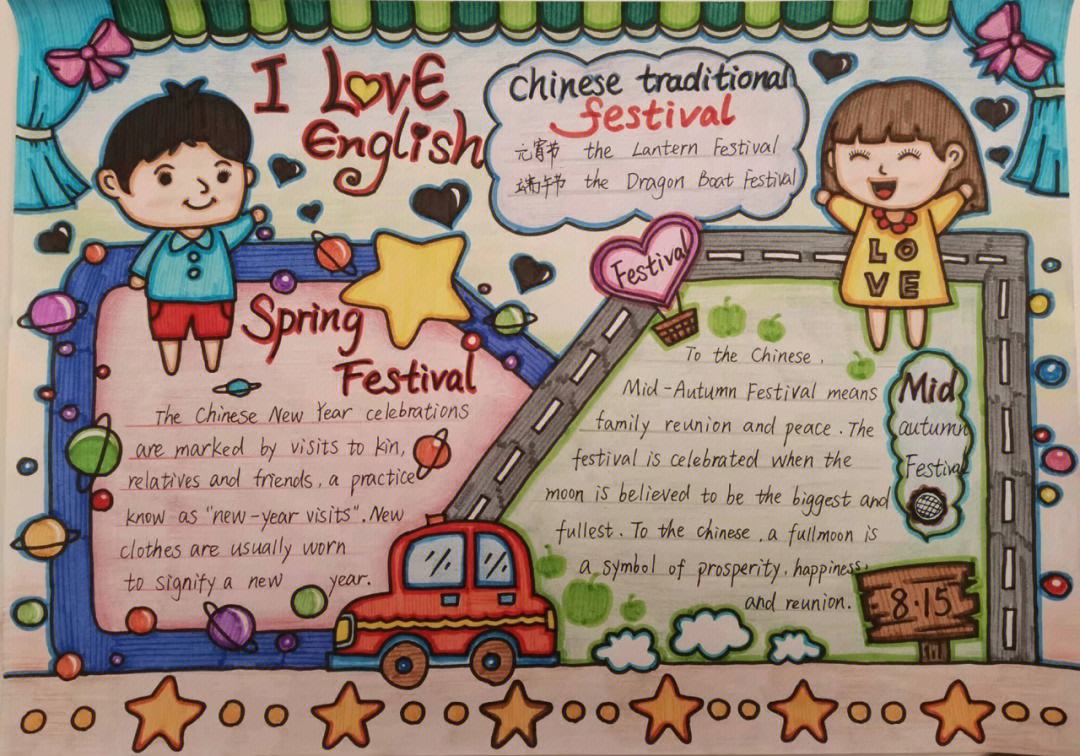 I LOVE
English
Chinese traditional
festival
元宵节 the Lantern Festival
端午节 the Dragon Boat Festival
LO
VE
Festival
Spring
Festival
The Chinese New Year celebrations
are marked by visits to kin,
relatives and friends, a practice
know as "new-year visits". New
clothes are usually worn
to signify a new year.
To the Chinese,
Mid-Autumn Festival means
family reunion and peace. The
festival is celebrated when the
moon is believed to be the biggest and
fullest. To the chinese, a fullmoon is
a symbol of prosperity, happiness,
and reunion.
Mid
autumn
Festival
8.15